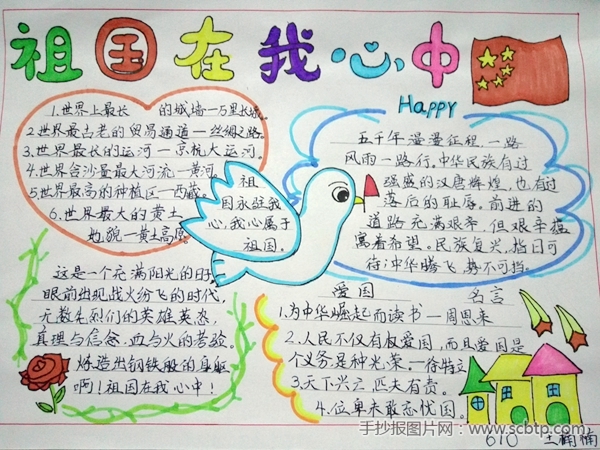 祖国在我心中
Happy
1.世界上最长 的城墙—万里长城。
2.世界最古老的贸易通道—丝绸之路。
3.世界最长的运河—京杭大运河。
4.世界含沙量最大河流—黄河
5世界最高的种植区—西藏。
6.世界最大的黄土
地貌—黄土高原
祖
国永驻我
心,我心属于
祖国。
五千年漫漫征程,一路
风雨一路行,中华民族有过
强盛的汉唐辉煌,也有过
落后的耻辱。前进的
道路充满艰辛,但艰辛蕴
寓着希望。民族复兴,指日可
待;中华腾飞,势不可挡。
这是一个充满阳光的日子
眼前出现战火纷飞的时代,
无数先烈们的英雄英姿,
真理与信念、血与火的考验。
炼造出钢铁般的身躯
啊!祖国在我心中!
爱国 名言
1.为中华崛起而读书—周恩来
2.人民不仅有权爱国,而且爱国是
个义务,是种光荣。—徐特立
3.天下兴亡,匹夫有责。
4.位卑未敢忘忧国。
手抄报图片网-www.scbtp.com
610 王楠楠